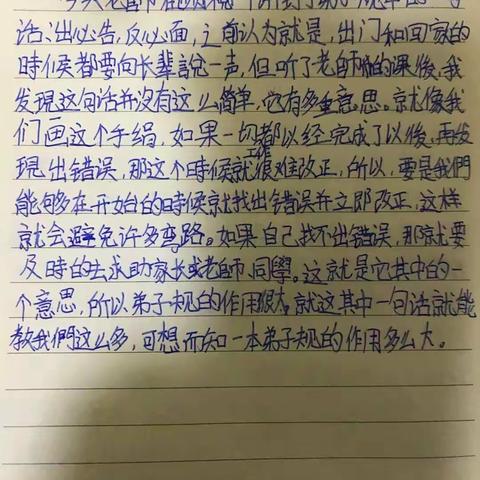 话:出必告,反必面,之前认为就是,出门和回家的
時候都要向长辈說一声,但听了老師的课後,我
发現这句话并没有这么简单,它有多重意思。就像我
们画这个手绢,如果一切都以经完成了以後,再发
現出错误,那这个時候工作就很难改正,所以,要是我們
能够在开始的時候就找出错误并立即改正,这样
就会避免许多弯路。如果自己找不出错误,那就要
及時的去求助家长或老師、同學。这就是它其中的一
个意思,所以弟子規的作用很大。就这其中一句话就能
教我們这么多,可想而知一本弟子规的作用多么大。